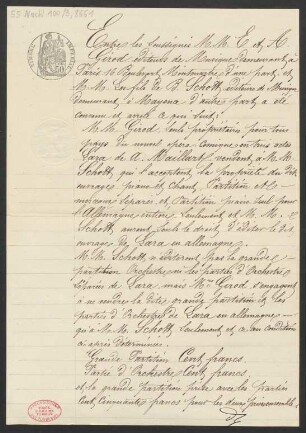 55 Nachl 100/B, 8661
Entre les soussignés M. M. E. et A.
Gérod éditeurs de Musique demeurant, à
Paris 16 Boulevart Montmartre d'une part, et
M. M. Les fils de B. Schott, éditeurs de Musique
demeurant, à Mayence d'autre part, a été
convenu et arrêté ce qui suit:
M. M. Gérod seuls propriétaires pour tous
pays du nouvel opéra comique en trois actes
Lara de A. Maillart, vendent, à M. M.
Schott, qui l'acceptent, la propriété du dit
ouvrage, piano et chant, Partition et
morceaux séparés, et Partition piano seul pour
l'Allemagne entière seulement, et M. M.
Schott, auront seuls le droit d'éditer le dit
ouvrage de Lara en allemagne.
M. M. Schott, n'éditeront pas la grande
partition d'Orchestre ni les parties d'Orchestre
séparées de Lara mais Mrs Gérod s'engagent
à ne vendre la dite grande partition et les
parties d'Orchestre de Lara en allemagne
qu'à M. M. Schott, seulement, et ce aux conditions
ci après déterminées:
Grande Partition Cent francs
Partie d'Orchestre Cent francs
et la grande partition prise avec les parties
Cent, Cinquante francs pour les deux